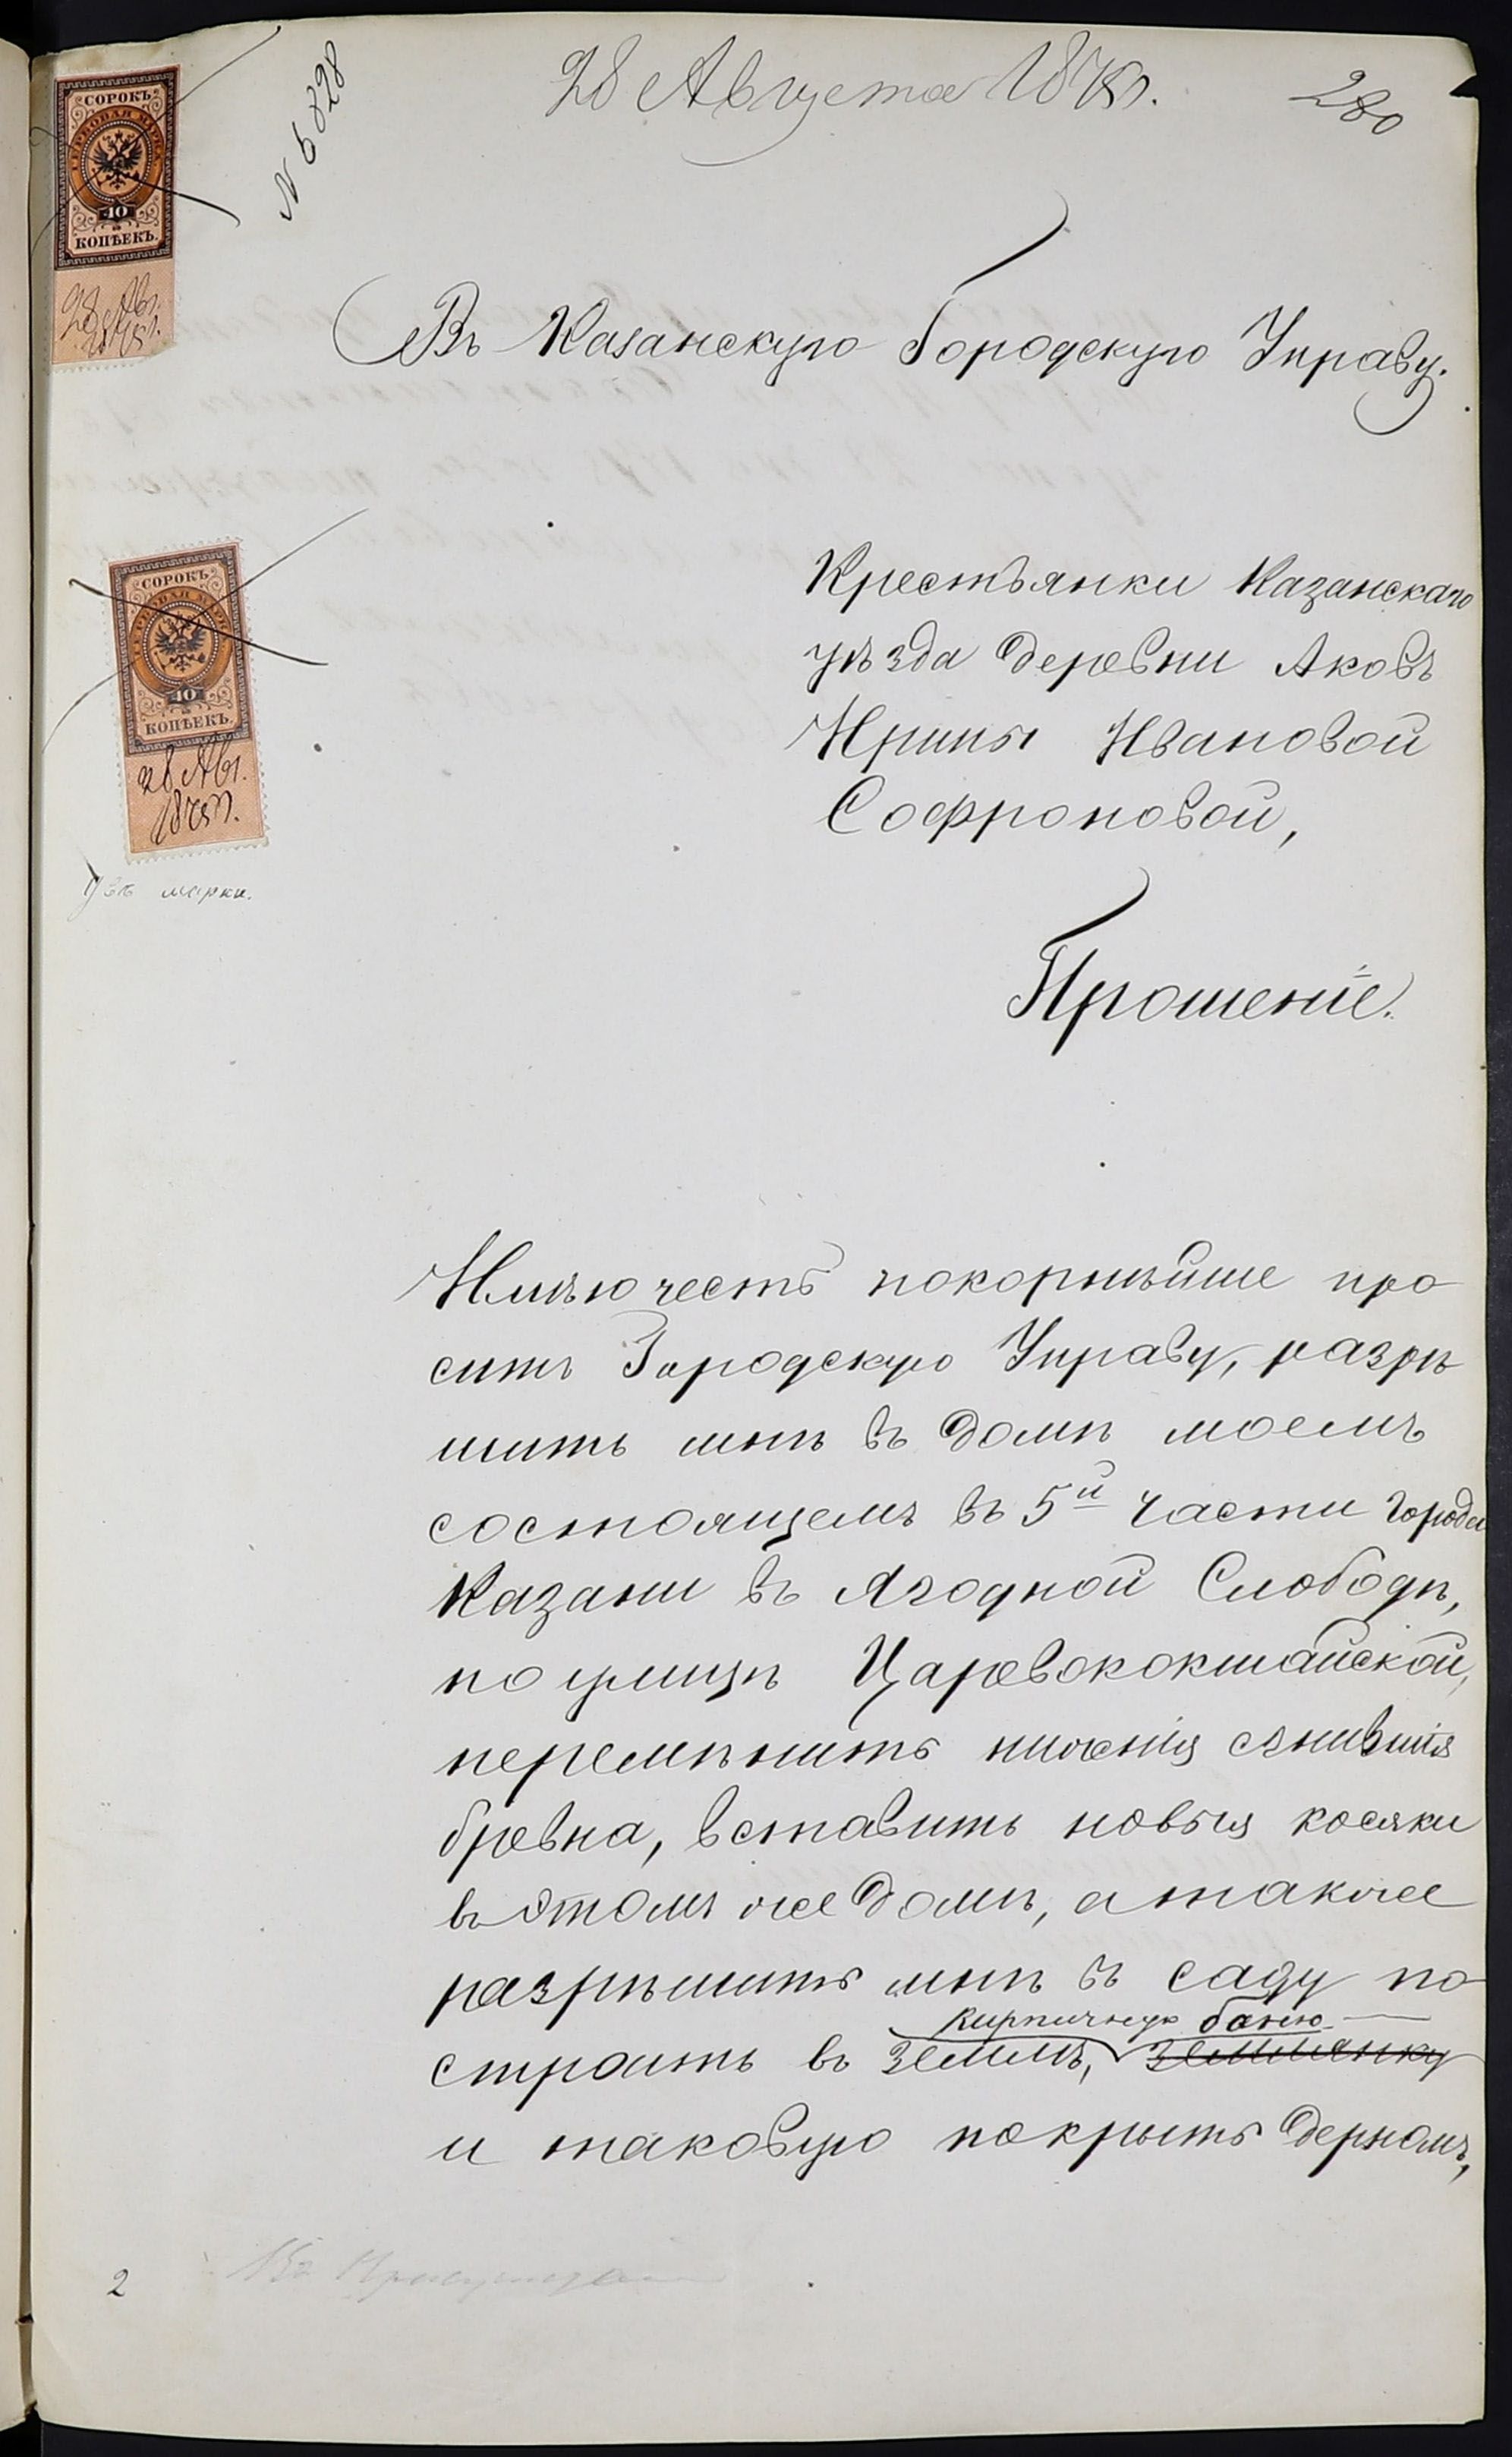 28 Августа 1875 г.
280
N 6828
СОРОКЪ
ГЕРБОВАЯ МАРКА
40
КОПѢЕКЪ.
28 Авг.
1875 г.
Въ Казанскую Городскую Управу.
СОРОКЪ
ГЕРБОВАЯ МАРКА
40
КОПѢЕКЪ.
28 Авг.
1875 г.
марки.
Крестьянки Казанскаго
уѣзда деревни Аковъ
Ирины Ивановой
Софроновой,
Прошеніе.
Имѣю честь покорнѣйше про
сить Городскую Управу, разрѣ
шить мнѣ въ домѣ моемъ
состоящемъ въ 5й части города
Казани въ Ягодной Слободѣ,
по улицѣ Царевококшайской,
перемѣнить нижнія сгнившія
бревна, вставить новыя косяки
въ этомъ же домѣ, а также
разрѣшить мнѣ въ саду по
кирпичную баню
строить въ землѣ, землянку
и таковую покрыть дерномъ,
2